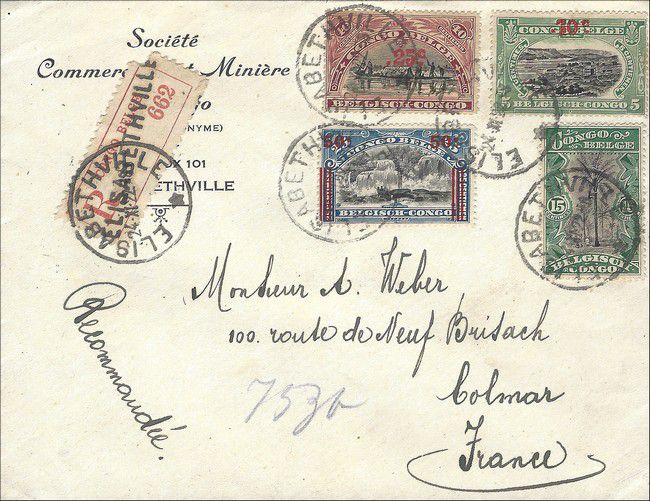 Société
Commer et Minière
NYME)
OX 101
ETHVILLE
662
ELISABETHVILLE
R
ELISABETHVILLE
40 40
CONGO BELGE
.25c
BELGISCH-CONGO
10c
CONGO BELGE
5 BELGISCH-CONGO 5
50c 50c
CONGO BELGE
BELGISCH-CONGO
CONGO BELGE
15
BELGISCH CONGO
Monsieur A. Weber
100. route de Neuf Brisach
Colmar
France
Recommandée.